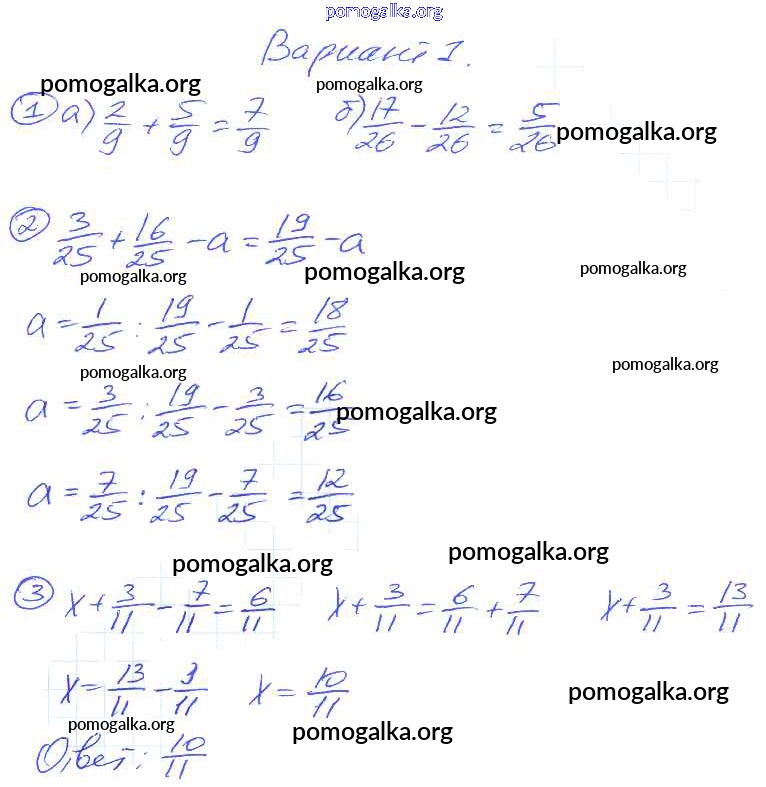 pomogalka.org
Вариант 1.
pomogalka.org pomogalka.org
1 а) 2/9 + 5/9 = 7/9 б) 17/26 - 12/26 = 5/26 pomogalka.org
2 3/25 + 16/25 - a = 19/25 - a
pomogalka.org pomogalka.org pomogalka.org
a = 1/25 : 19/25 - 1/25 = 18/25
pomogalka.org pomogalka.org
a = 3/25 : 19/25 - 3/25 = 16/25 pomogalka.org
a = 7/25 : 19/25 - 7/25 = 12/25
pomogalka.org pomogalka.org
3 x + 3/11 - 7/11 = 6/11 x + 3/11 = 6/11 + 7/11 x + 3/11 = 13/11
x = 13/11 - 3/11 x = 10/11 pomogalka.org
pomogalka.org pomogalka.org
Ответ: 10/11